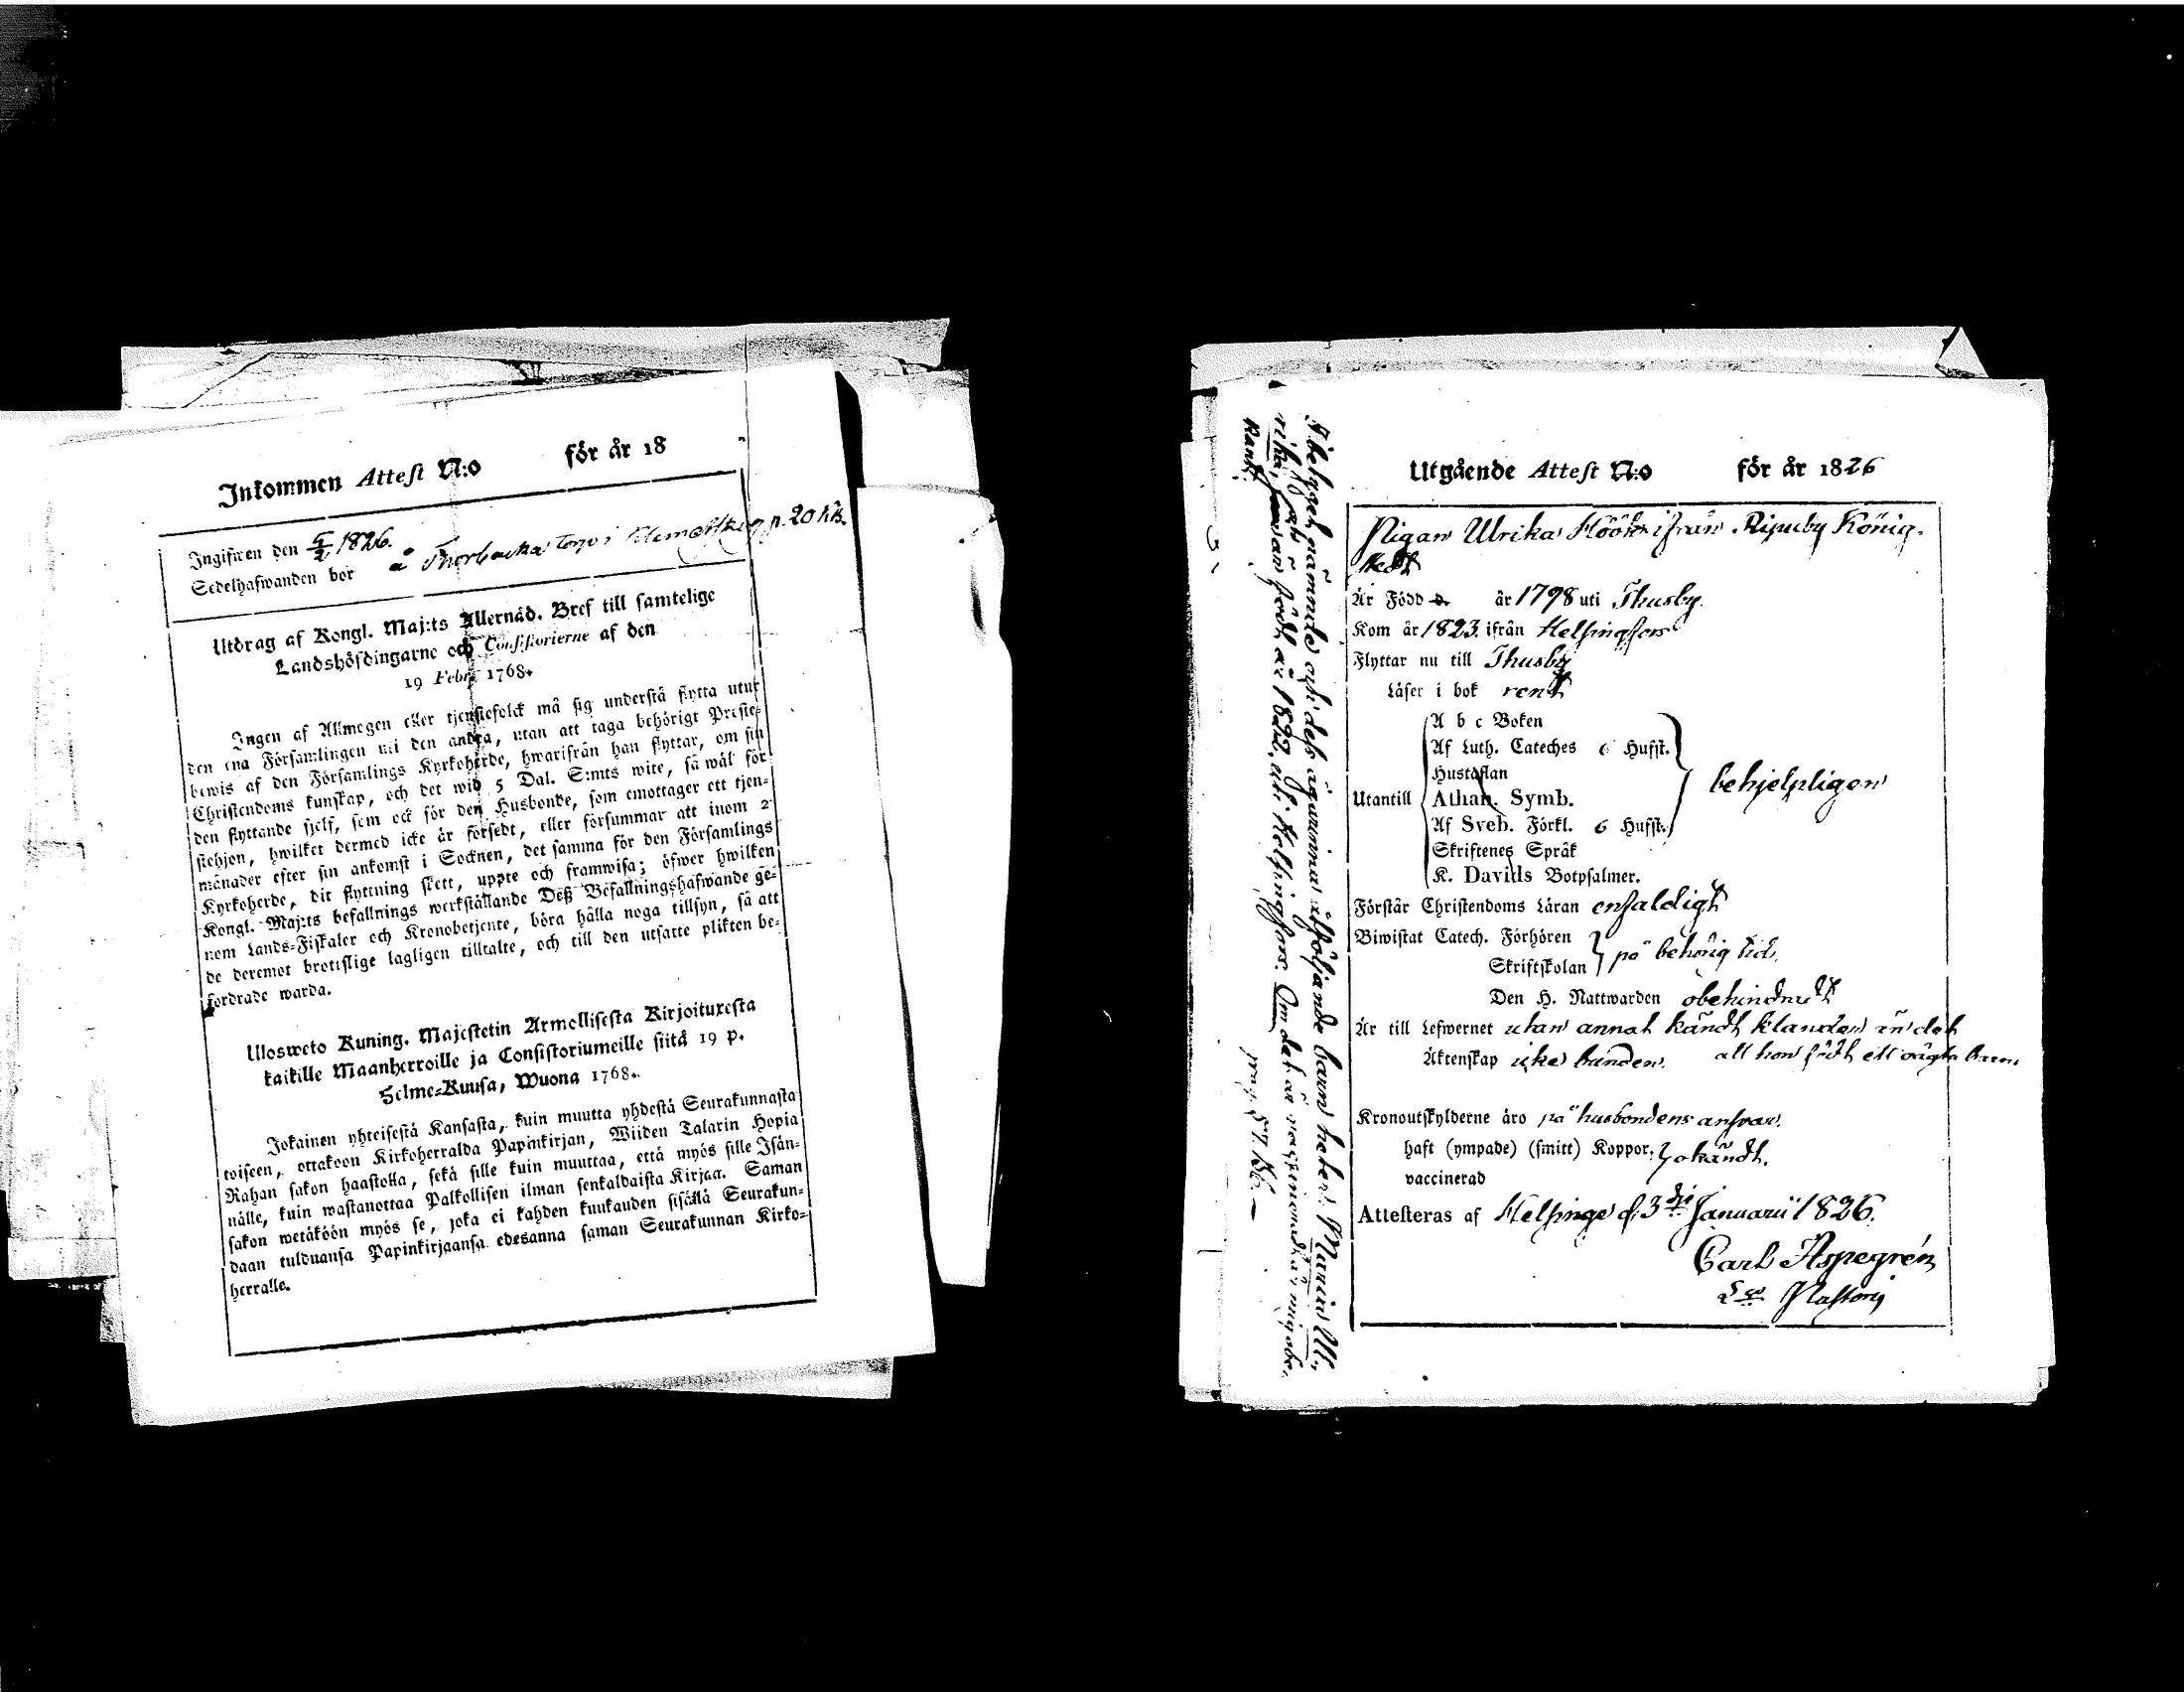 Inkommen Attest N:o för år 18
Ingifwen den 5/2 1826.
Sedelhafwanden bor å Thorbacka torp i Klemetskog p. 20
Utdrag af Kongl. Maj:ts Allernåd. Bref till samtelige
Landshöfdingarne och Consistorierne af den
19 Febr. 1768.
Ingen af Allmogen eller tjenstefolck må sig understå flytta utur
den ena Församlingen uti den andra, utan att taga behörigt Preste-
bewis af den Församlings Kyrkoherde, hwarifrån han flyttar, om sin
Christendoms kunskap, och det wid 5 Dal. S:mts wite, så wäl för
den flyttande sjelf, sem ock för den Husbonde, som emottager ett tjen-
stehjon, hwilket dermed icke är försedt, eller försummar att inom 2
månader efter sin ankomst i Socknen, det samma för den Församlings
Kyrkoherde, dit flyttning skett, uppte och framwisa; öfwer hwilken
Kongl. Maj:ts befallnings werkställande Deß Befallningshafwande ge-
nom Lands-Fiskaler och Kronobetjente, böra hålla noga tillsyn, så att
de deremot brottslige lagligen tilltalte, och till den utsatte plikten be-
fordrade warda.
Ulosweto Kuning. Majestetin Armollisesta Kirjoituxesta
kaikille Maanherroille ja Consistoriumeille siitä 19 p.
Helme-Kuusa, Wuona 1768.
Jokainen yhteisestä Kansasta, kuin muutta yhdestä Seurakunnasta
toiseen, ottakoon Kirkoherralda Papinkirjan, Wiiden Talarin Hopia
Rahan sakon haastolla, sekä sille kuin muuttaa, että myös sille Isän-
nälle, kuin wastanottaa Palkollisen ilman senkaldaista Kirjaa. Saman
sakon wetäköön myös se, joka ei kahden kuukauden sisällä Seurakun-
daan tulduansa Papinkirjaansa edesanna saman Seurakunnan Kirko-
herralle.
Utgående Attest N:o för år 1826
Pigan Ulrika Höök ifrån Ripuby König-
stedt
Är Född d. år 1798 uti Thusby.
Kom år 1823. ifrån Helsingfors
Flyttar nu till Thusby
Läser i bok rent
Utantill
A b c Boken
Af Luth. Cateches 6 Hufst.
Hustaflan
Athan. Symb.
Af Sveb. Förkl. 6 Hufst.
Skriftenes Språk
K. Davids Botpsalmer.
behjelpligen
Förstår Christendoms Läran enfaldigt
Biwistat Catech. Förhören
Skriftskolan
på behörig tid.
Den H. Nattwarden obehindradt
Är till Lefwernet utan annat kändt klander än det
att hon födt ett oägta barn
Äktenskap icke bunden.
Kronoutskylderne äro på husbondens answar.
haft (ympade) (smitt) Koppor,
vaccinerad
okändt.
Attesteras af Helsinge d. 3:die Januarii 1826.
Carl Aspegrén
Pastoris
Ibehgel nämnde och dess åqwinna åtföljande barn heter: Maria Ul-
rika, och är född år 1822, uti Helsingfors. Om det är vaccineradt är mig obe-
kant.